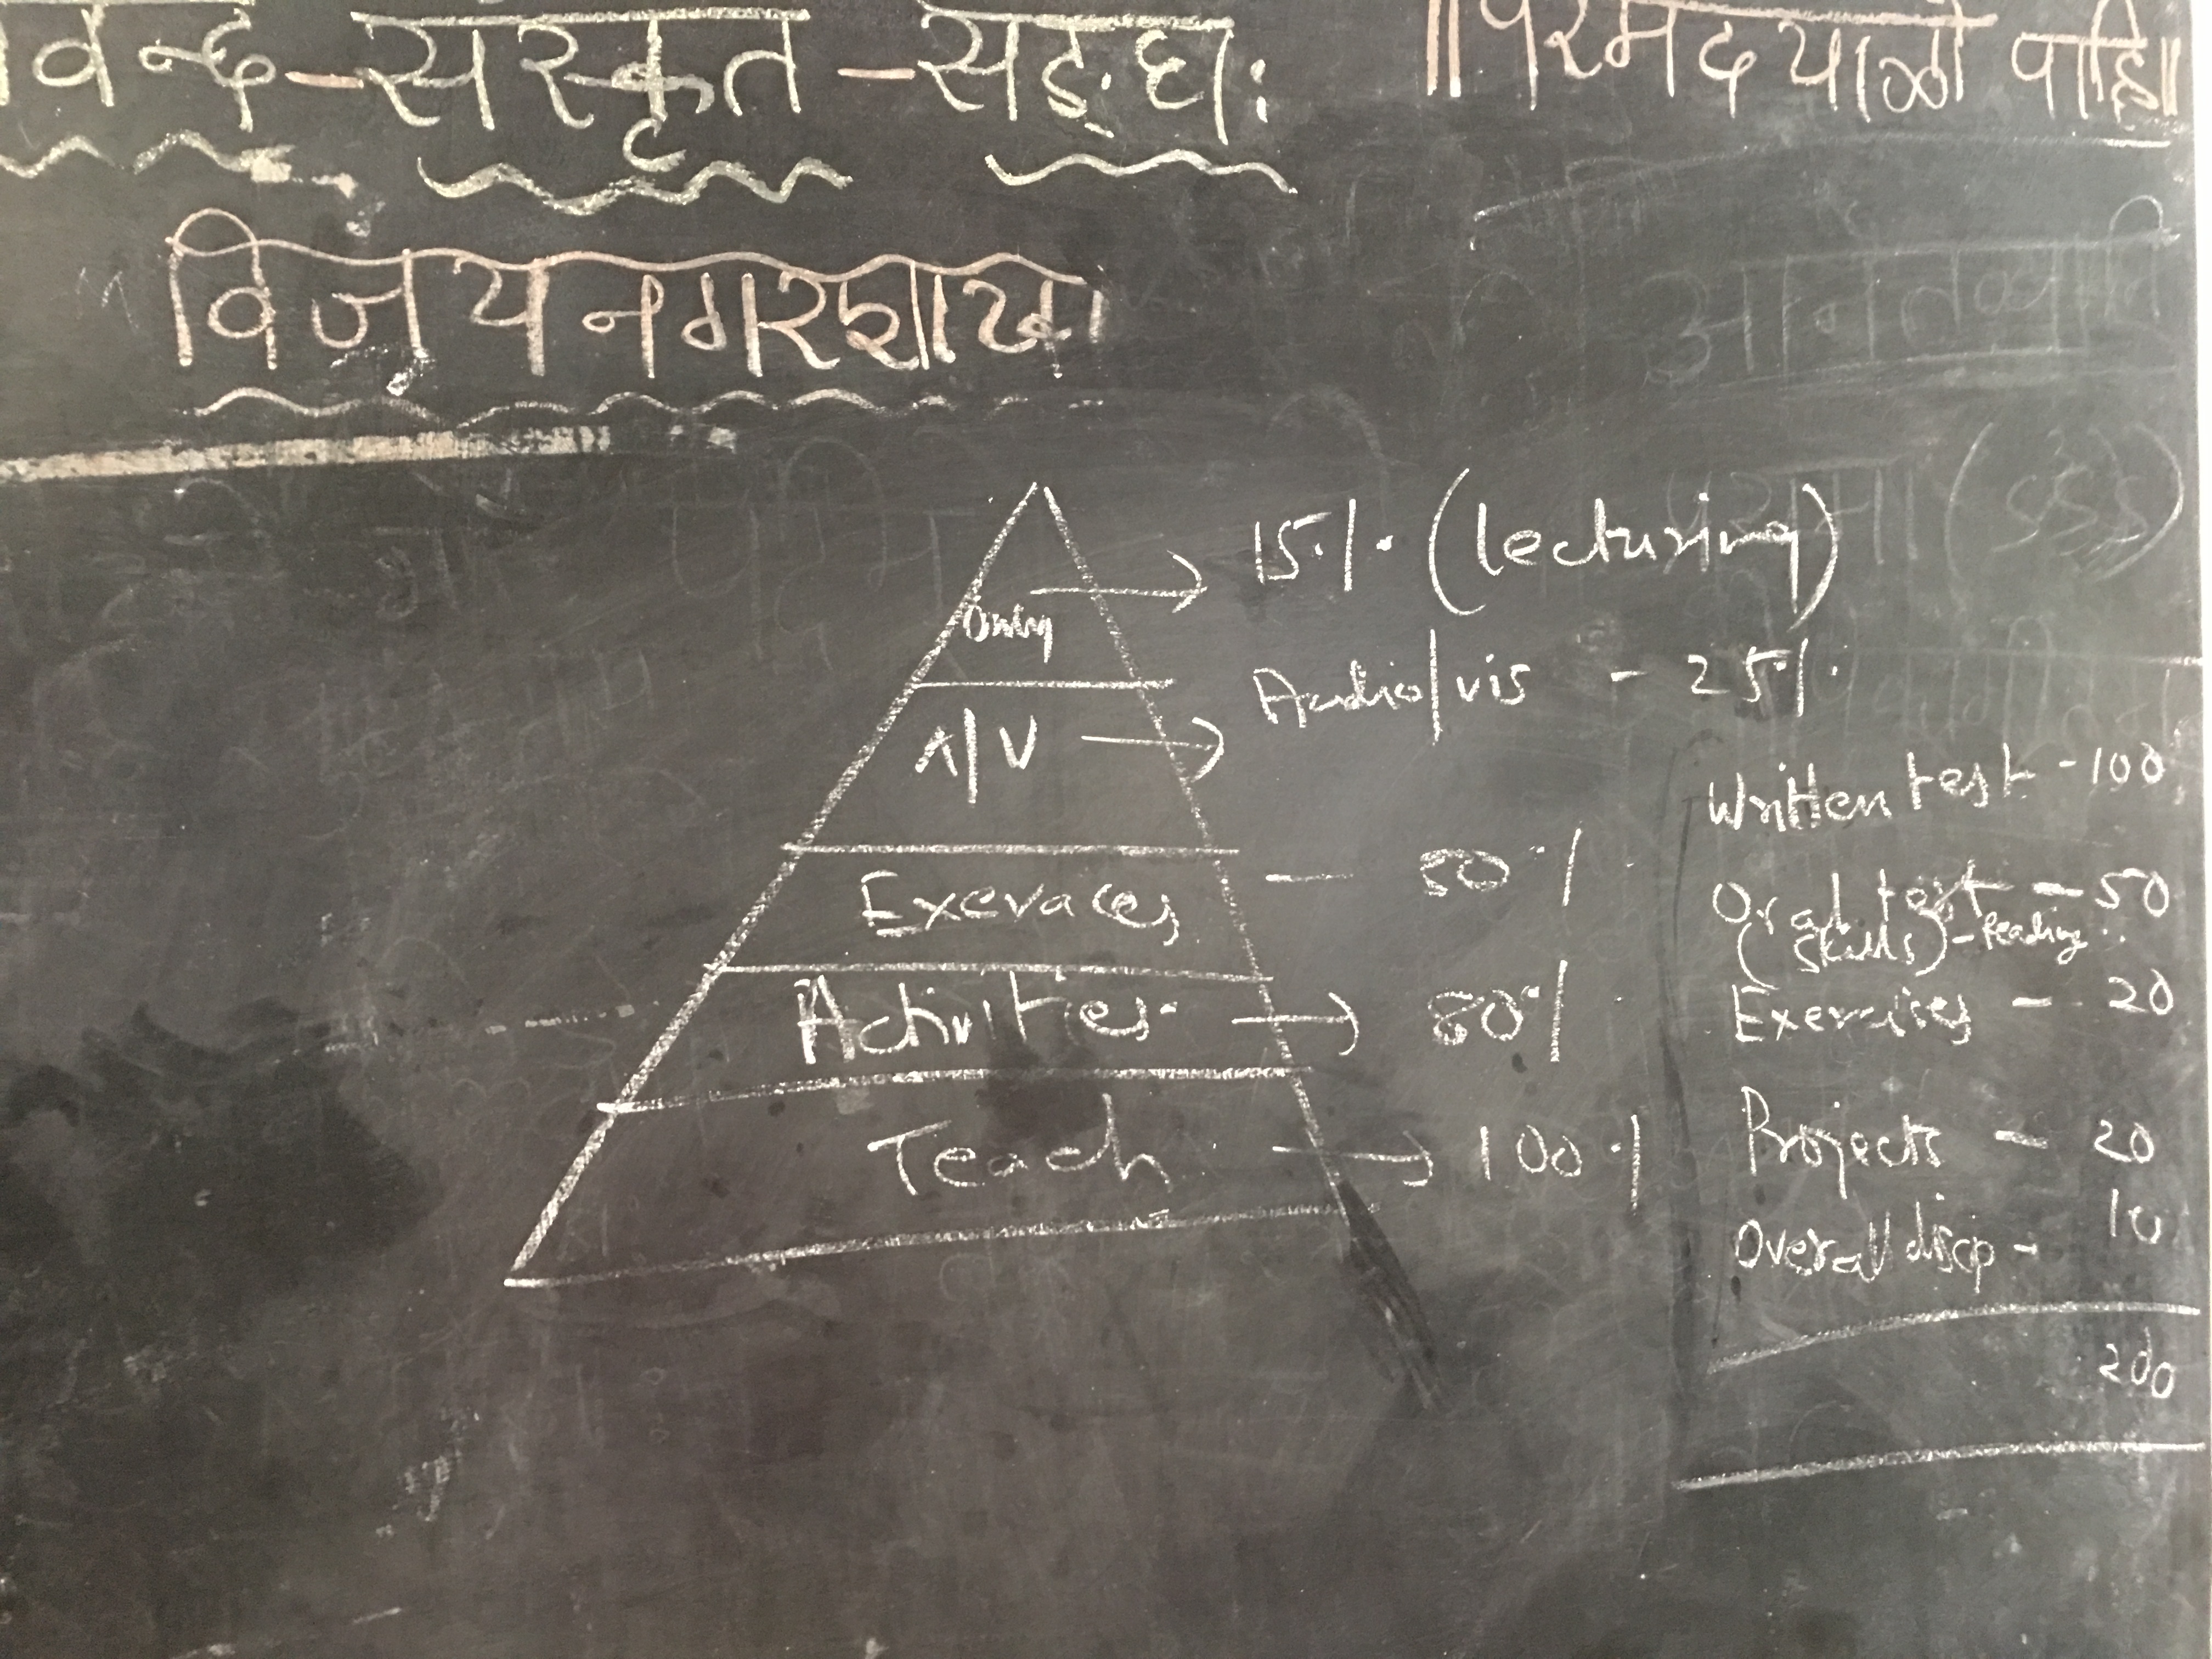 विन्द-संस्कृत-सङ्घः
॥परमदयाळो पाहि॥
विजयनगरशाखा
15% (lecturing)
Audio/vis - 25%
A/V
Exercaces - 50%
Activities. 80%
Teach 100%
Written test - 100
Oral test - 50
(skills) - reading
Exercises - 20
Projects - 20
Overall discp - 10
200